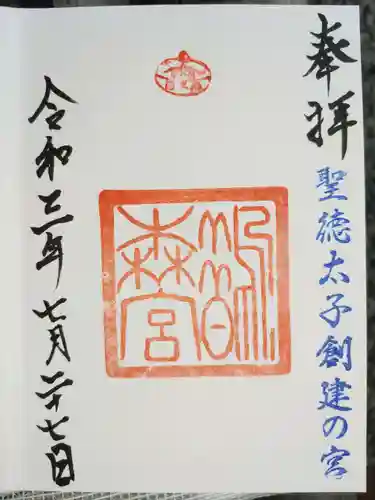 奉拝
聖徳太子創建の宮
鵲森宮
令和三年七月二十七日